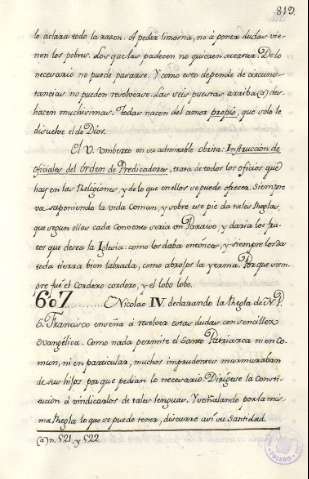 312.
le aclara toda la razon. Al pedir limosna, no á poner dudas vie-
nen los pobres. Los que las padecen no quieren acertar. De lo
necesario no puede pasarse. Y como esto depende de circuns-
tancias no pueden resolverse. Las seis puestas arriba (a) des-
hacen muchísimas. Todas nacen del amor propio, que solo le
disuelve el de Dios.
El V. Umberto en su admirable obra: Instruccion de
oficiales del Orden de Predicadores, trata de todos los oficios que
hay en las Religiones, y de lo que en ellos se puede ofrecer. Siempre
va suponiendo la vida comun, y sobre ese pie da tales Reglas,
que segun ellas cada Convento sería un Paraiso y daría los fru-
tos que desea la Iglesia como los daba entonces, y siempre los da
toda tierra bien labrada, como abrojos la yerma. Porque siem-
pre fué el Cordero cordero, y el lobo lobo.
607 Nicolao IV declarando la Regla de N. P.
S. Francisco enseña á resolver estas dudas con sencillez
evangélica. Como nada permite el Santo Patriarca ni en Co-
mun, ni en particular, muchos imprudentes murmuraban
de sus hijos porque pedian lo necesario. Dirígese la Constitu-
cion á vindicarlos de tales lenguas. Y señalando por la mis-
ma Regla lo que se puede tener, discurre así su Santidad.
(a) n. 521. y 522.